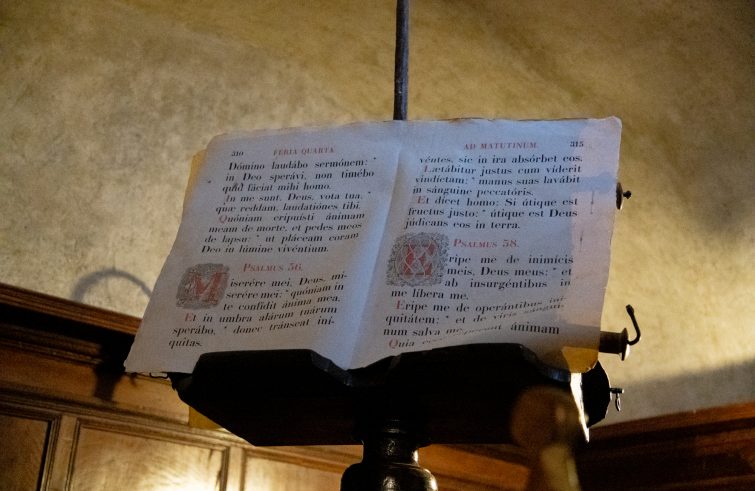 310 FERIA QUARTA
Dómino laudábo sermónem: *
in Deo sperávi, non timébo
quid fáciat mihi homo.
In me sunt, Deus, vota tua,
quæ reddam, laudatiónes tibi.
Quóniam eripuísti ánimam
meam de morte, et pedes meos
de lapsu: * ut pláceam coram
Deo in lúmine vivéntium.
PSALMUS 56.
Miserére mei, Deus, mi-
serére mei: * quóniam in
te confídit ánima mea.
Et in umbra alárum tuárum
sperábo, * donec tránseat iní-
quitas.
AD MATUTINUM. 315
véntes, sic in ira absórbet eos.
Lætábitur justus cum víderit
vindíctam: * manus suas lavábit
in sánguine peccatóris.
Et dicet homo: Si útique est
fructus justo: * útique est Deus
júdicans eos in terra.
PSALMUS 58.
Eripe me de inimícis
meis, Deus meus: * et
ab insurgéntibus in
me líbera me.
Eripe me de operántibus iní-
quitátem: * et de viris sánguinum
salva me.
ánimam
Quia